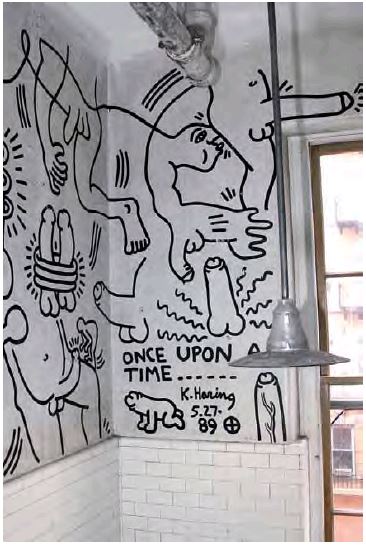 ONCE UPON A
TIME ------
K. Haring
5.27.
89 ⊕